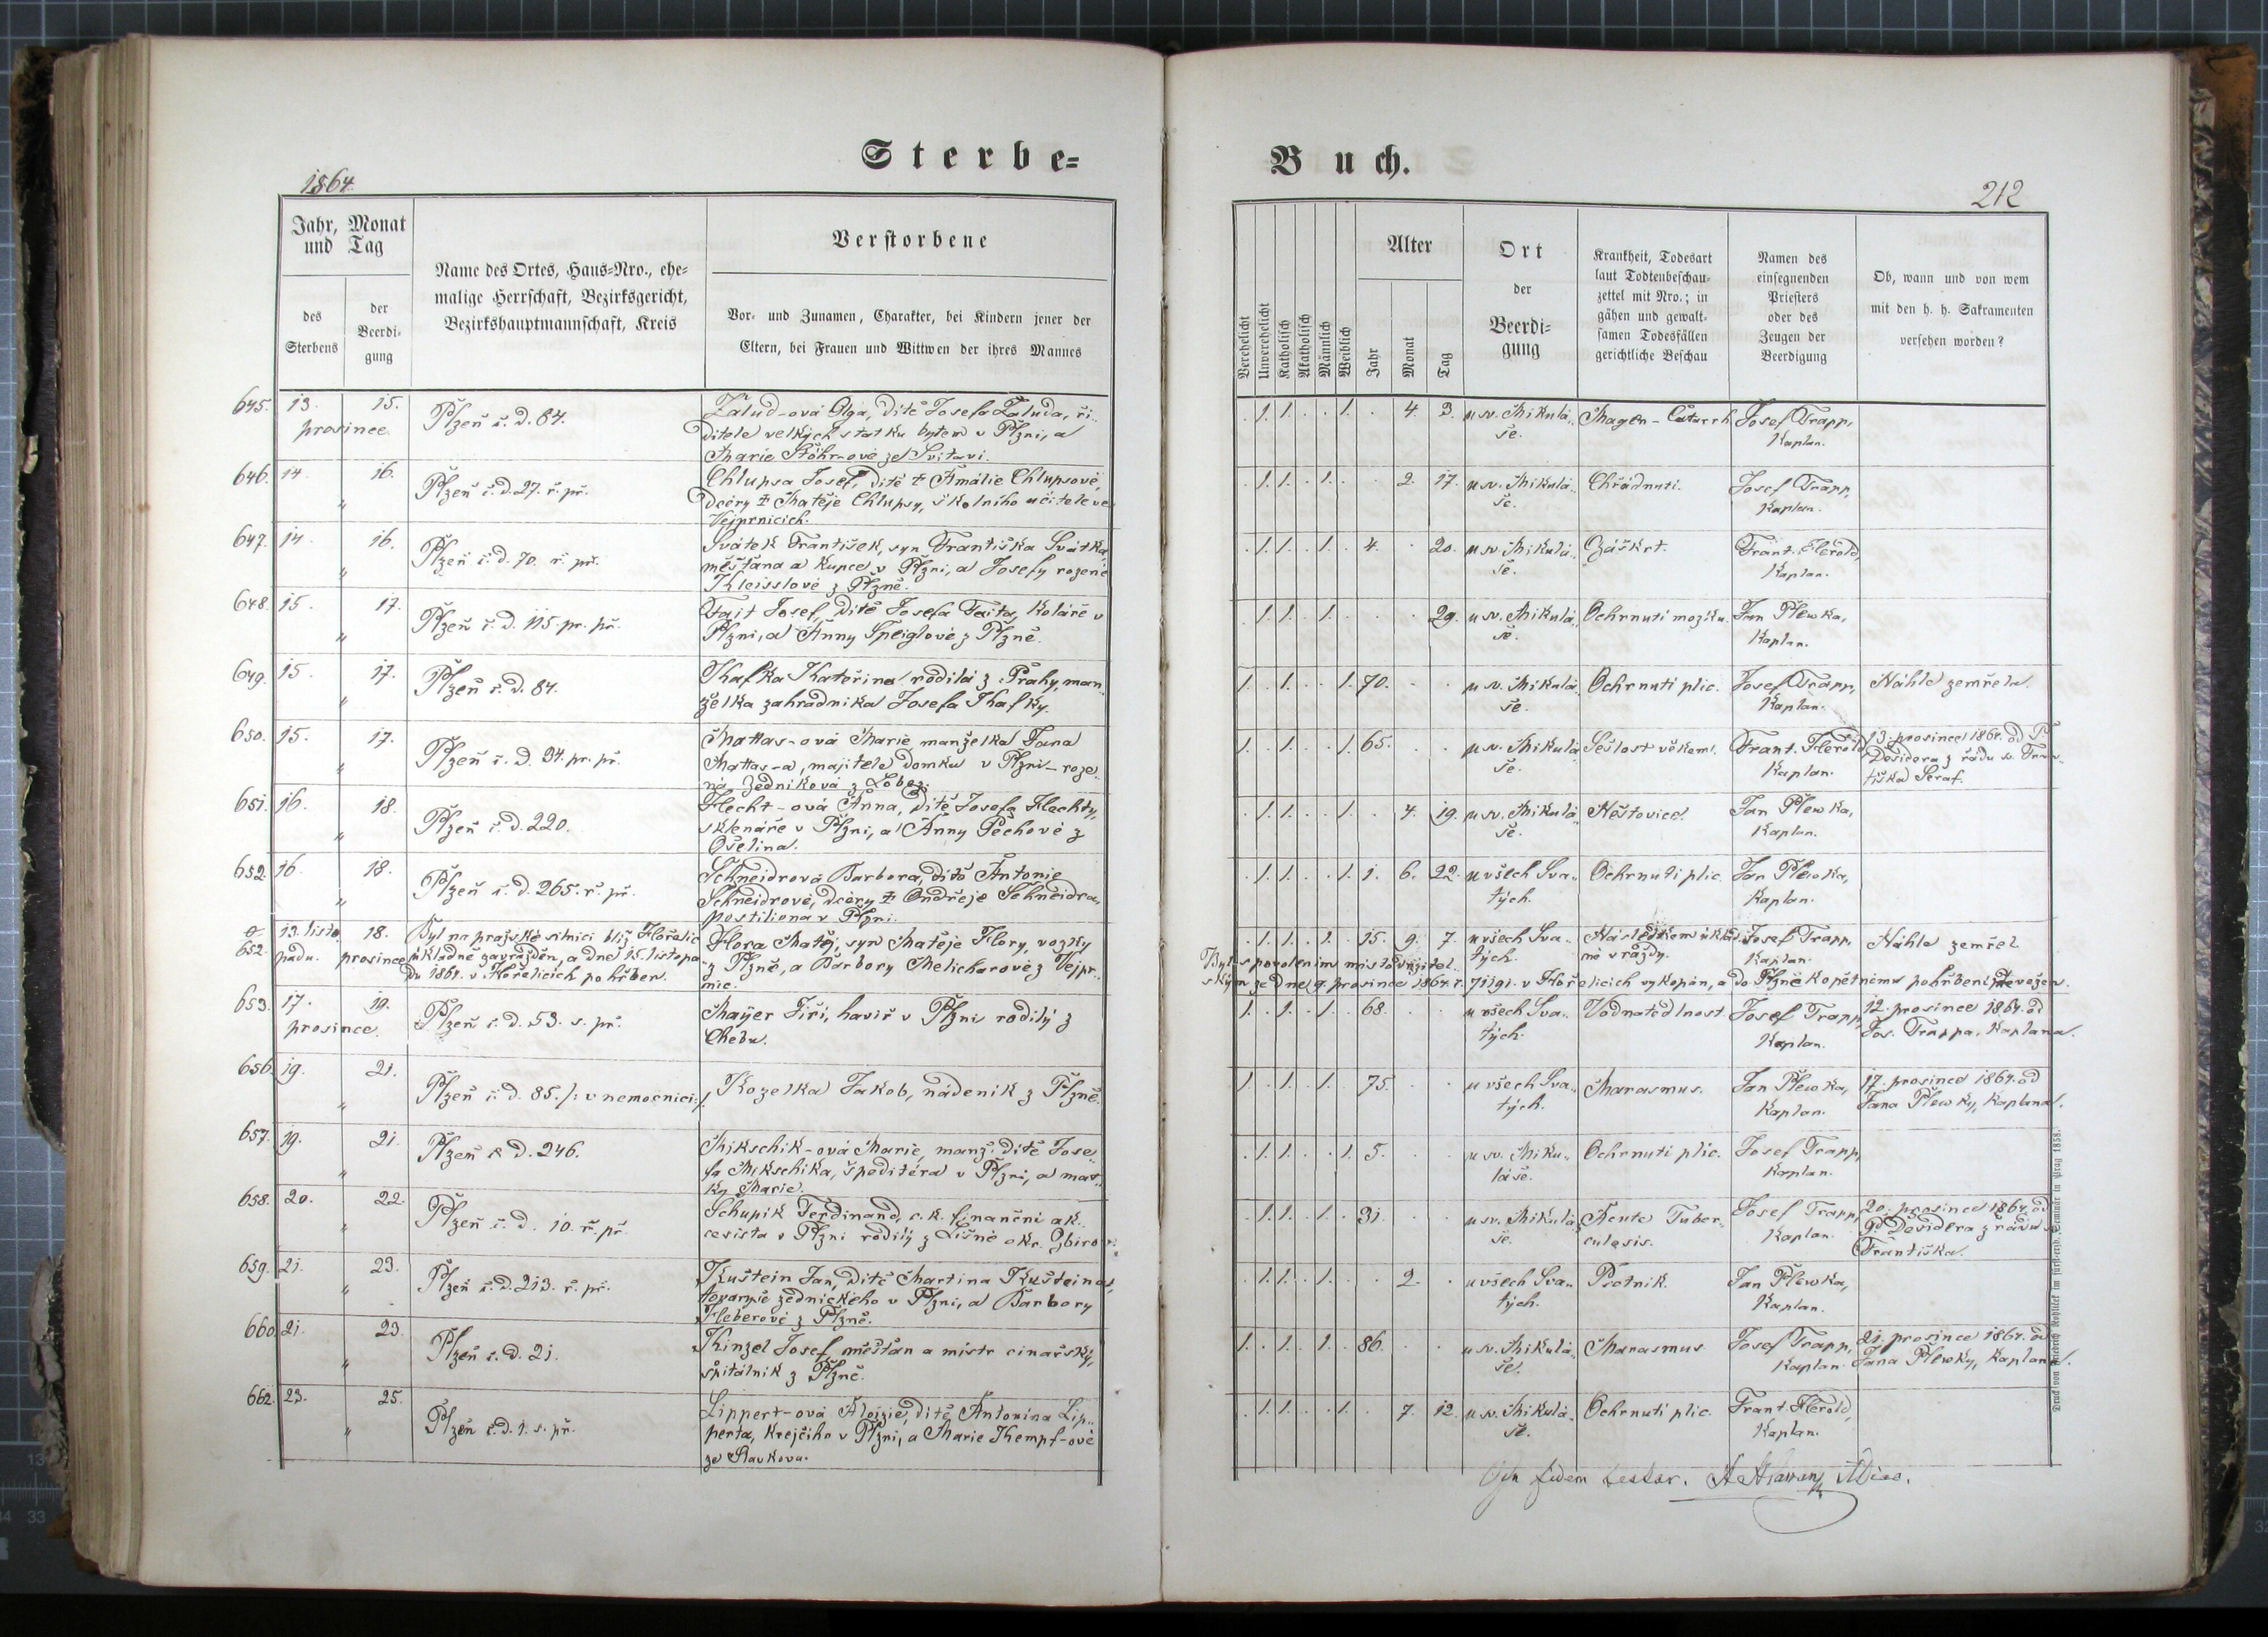 Sterbe-
Buch.
1864.
212
Jahr, Monat
und Tag
des
Sterbens
der
Beerdi-
gung
Name des Ortes, Haus-Nro., ehe-
malige Herrschaft, Bezirksgericht,
Bezirkshauptmannschaft, Kreis
Verstorbene
Vor- und Zunamen, Charakter, bei Kindern jener der
Eltern, bei Frauen und Wittwen der ihres Mannes
Verehelicht
Unverehelicht
Katholisch
Akatholisch
Männlich
Weiblich
Alter
Jahr
Monat
Tag
Ort
der
Beerdi-
gung
Krankheit, Todesart
laut Todtenbeschau-
zettel mit Nro.; in
gähen und gewalt-
samen Todesfällen
gerichtliche Beschau
Namen des
einsegnenden
Priesters
oder des
Zeugen der
Beerdigung
Ob, wann und von wem
mit den h. h. Sakramenten
versehen worden?
645. 13. 15. Plzeň č. d. 84. Žalud-ová Olga, dítě Josefa Žaluda, ři-
prosince ditele velkých statku bytem v Plzni, a
Marie Stöhr-ové ze Svitavi.
. 1. 1. . . 1. . 4. 3. u sv. Mikulá- Magen-Catarrh Josef Trapp,
še. Kaplan.
646. 14. 16. Plzeň č. d. 27. ř. př. Chlupsa Josef, dítě † Amálie Chlupsové,
" dcéry † Matěje Chlupsy, školního učitele ve
Vejprnicích.
. 1. 1. . 1. . . 2. 17. u sv. Mikulá- Chřádnutí. Josef Trapp,
še. Kaplan.
647. 14. 16. Plzeň č. d. 70. ř. př. Svátek František, syn Františka Svátka
" měštana a kupce v Plzni, a Josefy rozené
Kleisslové z Plzně.
. 1. 1. . 1. . 4. . 20. u sv. Mikulá- Záškrt. Frant. Herold,
še. Kaplan.
648. 15. 17. Plzeň č. d. 115. pr. př. Fajt Josef, dítě Josefa Faita, koláře v
" Plzni, a Anny Špeiglové z Plzně.
. 1. 1. . 1. . . . 29. u sv. Mikulá- Ochrnutí mozku. Jan Plewka,
še. Kaplan.
649. 15. 17. Plzeň č. d. 84. Kafka Kateřina rodilá z Prahy, man-
" želka zahradníka Josefa Kafky.
1. . 1. . . 1. 70. . . u sv. Mikulá- Ochrnutí plic. Josef Trapp, Náhle zemřela.
še. Kaplan.
650. 15. 17. Plzeň č. d. 94. pr. př. Mattas-ová Marie, manželka Jana
" Mattas-a, majitele domku v Plzni - roze-
ná Zedníková z Lobez.
1. . 1. . . 1. 65. . . u sv. Mikulá- Sešlost věkem. Frant. Herold, 13. prosince 1864. od P.
še. Kaplan. Desidera z řádu sv. Fran-
tiška Seraf.
651. 16. 18. Plzeň č. d. 220. Flecht-ová Anna, dítě Josefa Flechty,
" sklenáře v Plzni, a Anny Pechové z
Ošelina.
. 1. 1. . . 1. . 4. 19. u sv. Mikulá- Neštovice. Jan Plewka,
še. Kaplan.
652. 16. 18. Plzeň č. d. 265. ř. př. Schneidrová Barbora, dítě Antonie
" Schneidrové, dcéry † Ondřeje Schneidra,
postiliona v Plzni.
. 1. 1. . . 1. 1. 6. 22. u všech Sva- Ochrnutí plic. Jan Plewka,
tých. Kaplan.
a
652. 13. listo- 18. Byl na pražské silnici blíž Hořelic Flora Matěj, syn Matěje Flory, vozky
padu. prosince úkladně zavražděn, a dne 15. listopa- z Plzně, a Barbory Melicharové z Vejpr-
du 1864. v Hořelicích pohřben. nic.
. 1. 1. . 1. . 15. 9. 7. u všech Sva- Následkem úklad- Josef Trapp, Náhle zemřel
tých. né vraždy. Kaplan.
Byl s povolením místodržitel-
ským ze dne 9. prosince 1864. v Hořelicích vykopán, a do Plzně kopětnému pohřbení převežen.
653. 17. 19. Plzeň č. d. 53. s. př. Mayer Jiří, havíř v Plzni rodilý z
prosince Chebu.
1. . 1. . 1. . 68. . . u všech Sva- Vodnatedlnost Josef Trapp, 12. prosince 1864. od
tých. Kaplan. Jos. Trappa, Kaplana.
656. 19. 21. Plzeň č. d. 85. /: v nemocnici :/ Kozelka Jakob, nádeník z Plzně.
"
1. . 1. . 1. . 75. . . u všech Sva- Marasmus. Jan Plewka, 17. prosince 1864. od
tých. Kaplan. Jana Plewky, Kaplana.
657. 19. 21. Plzeň č. d. 246. Mikschik-ová Marie, manž. dítě Jose-
" fa Mikschika, špeditéra v Plzni, a mat-
ky Marie.
. 1. 1. . . 1. 5. . . u sv. Miku- Ochrnutí plic. Josef Trapp,
láše. Kaplan.
658. 20. 22. Plzeň č. d. 10. ř. př. Schupik Ferdinand, c. k. finanční ak-
" cesista v Plzni rodilý z Lišné okr. Zbirov.
. 1. 1. . 1. . 31. . . u sv. Mikulá- Acute Tuber- Josef Trapp, 20. prosince 1864. od
še. culosis. Kaplan. P. Desidera z řádu s.
Františka.
659. 21. 23. Plzeň č. d. 213. ř. př. Kuštein Jan, dítě Martina Kušteina,
" tovaryše zednického v Plzni, a Barbory
Kleberové z Plzně.
. 1. 1. . 1. . . 2. . u všech Sva- Psotník. Jan Plewka,
tých. Kaplan.
660. 21. 23. Plzeň č. d. 21. Kinzel Josef, měštan a mistr cínařský,
" špitálník z Plzně.
1. . 1. . 1. . 86. . . u sv. Mikulá- Marasmus Josef Trapp, 21. prosince 1864. od
še. Kaplan. Jana Plewky, Kaplana.
662. 23. 25. Plzeň č. d. 1. s. př. Lippert-ová Aloizie, dítě Antonína Lip-
" perta, krejčího v Plzni, a Marie Kempf-ové
ze Slavkova.
. 1. 1. . . 1. . 7. 12. u sv. Mikulá- Ochrnutí plic. Frant. Herold,
še. Kaplan.
fidem testor.
Druck von Friedrich Rohliček im fürst-erzb. Seminär in Prag 1858.